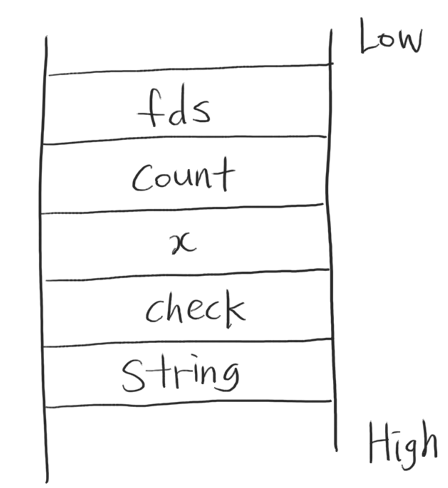 Low
fds
Count
x
check
String
High